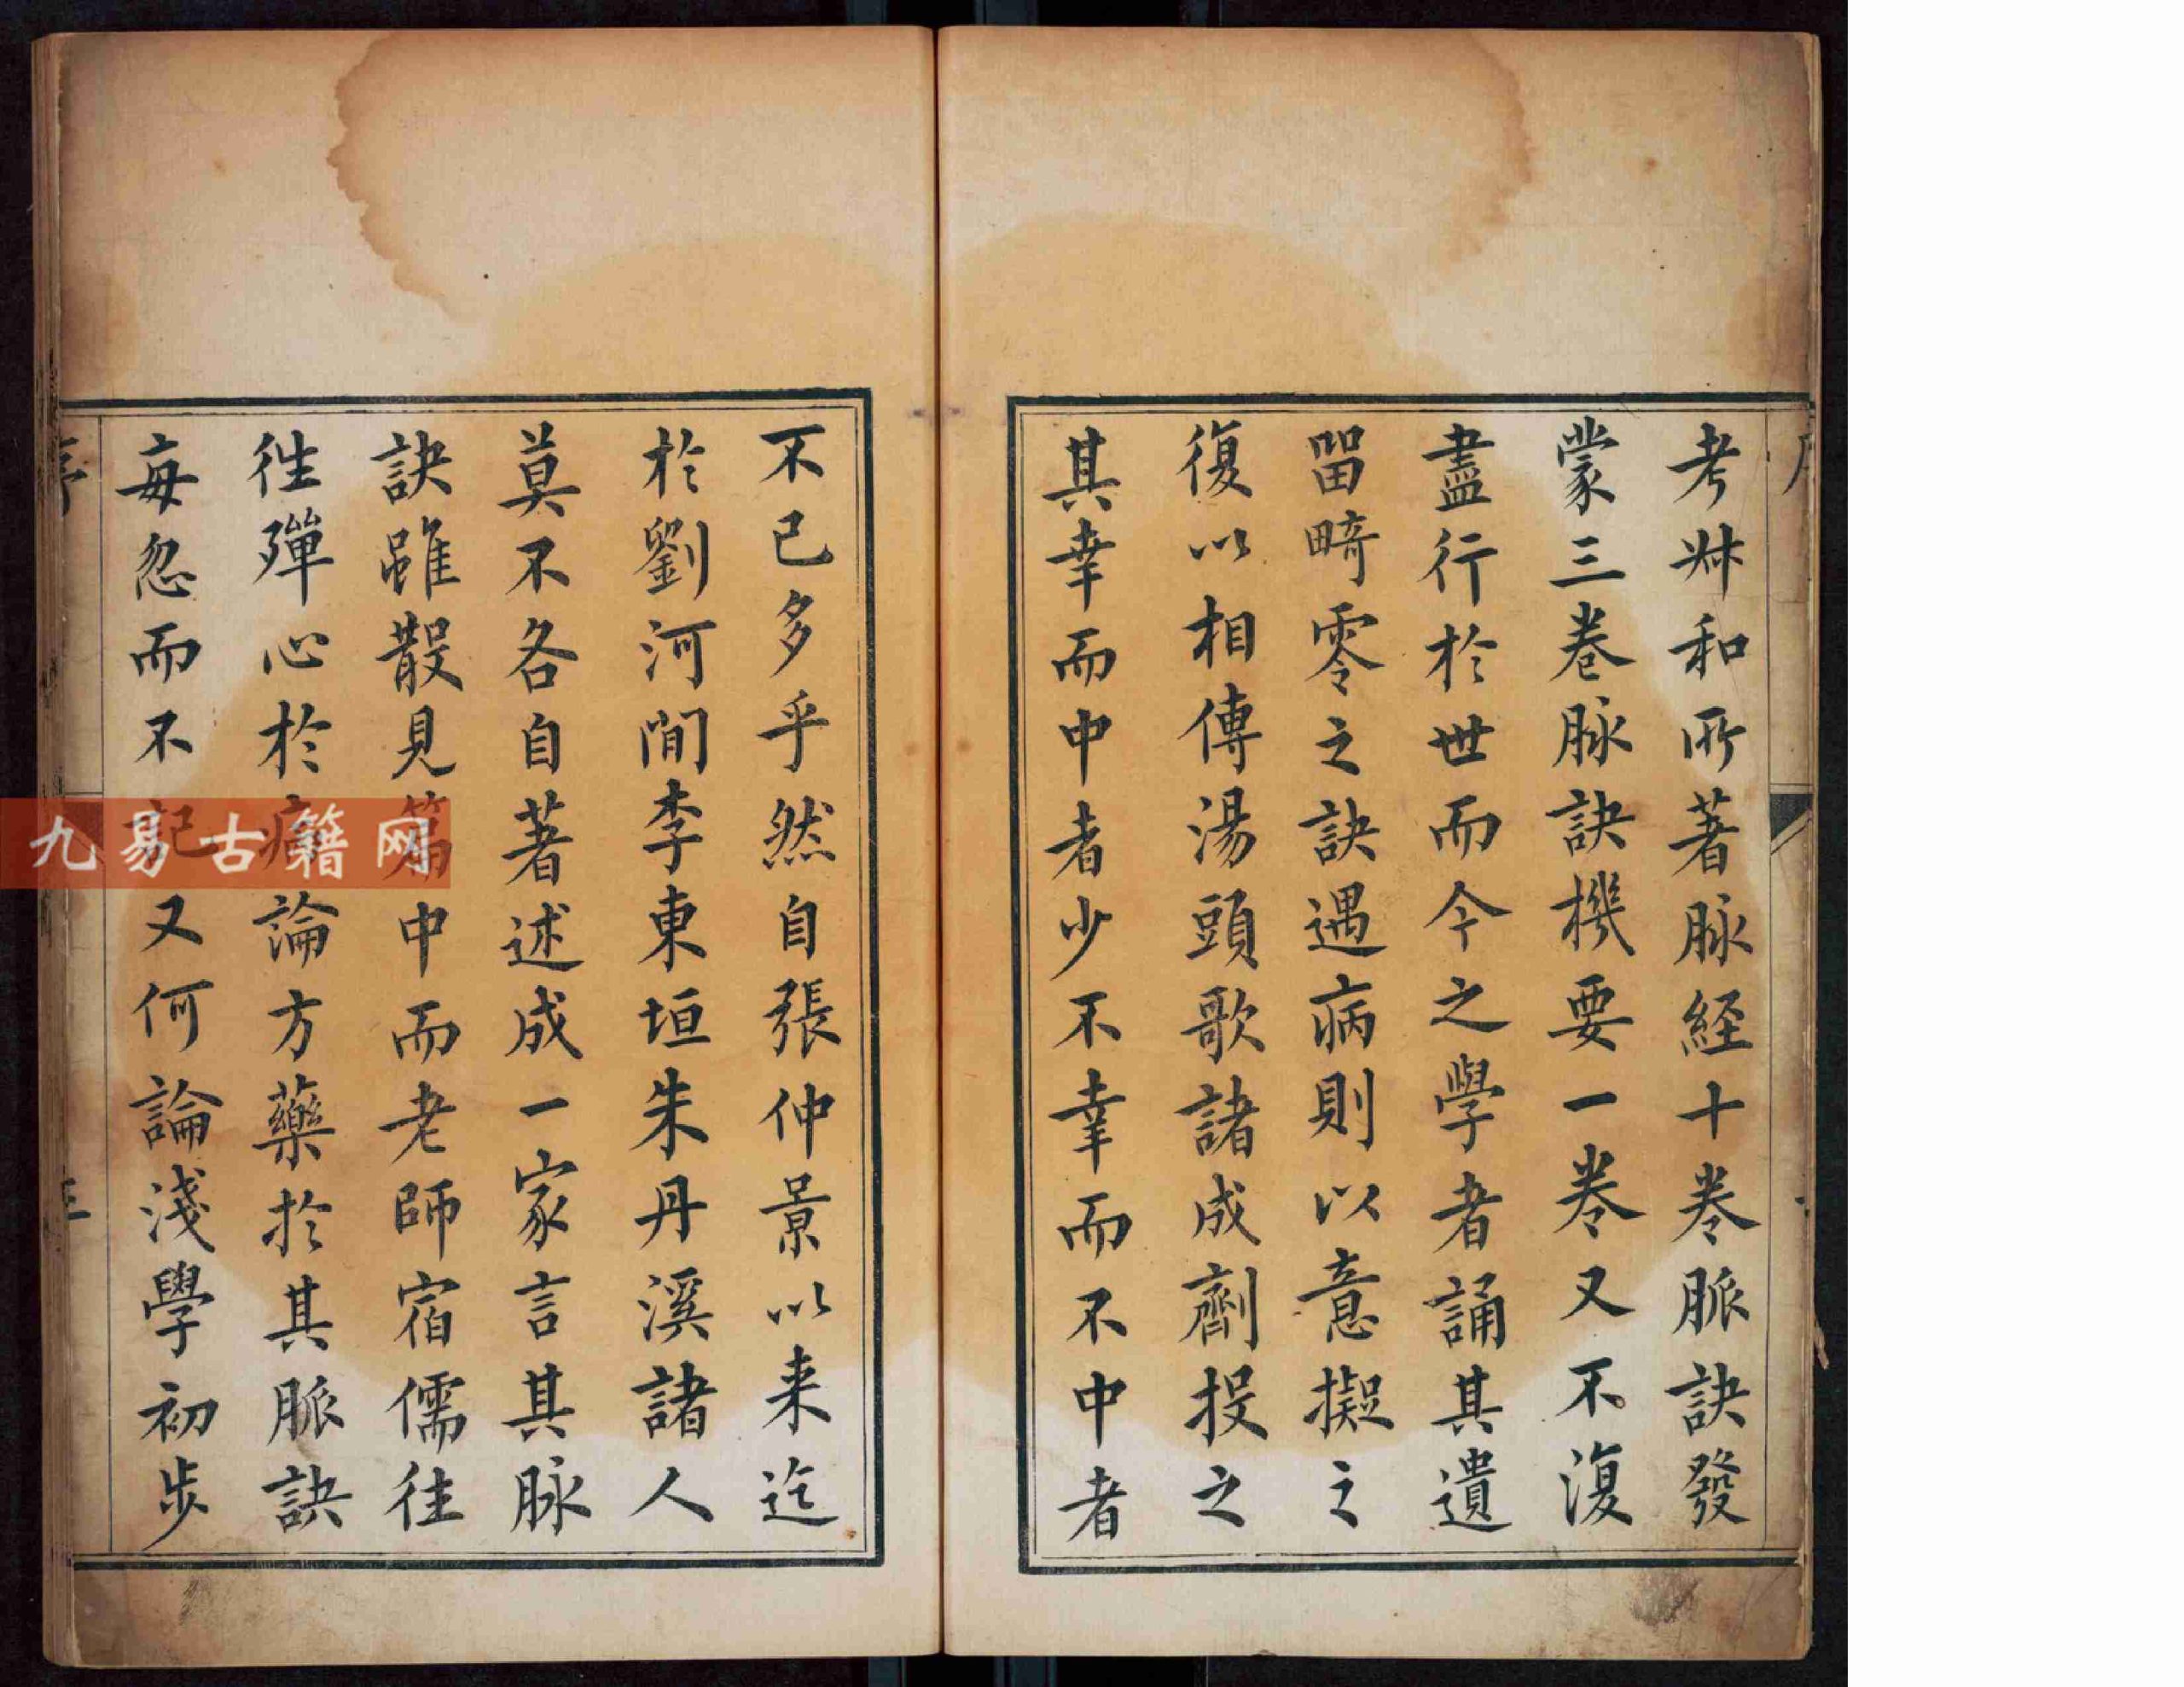 考叔和所著脉経十卷脈訣發
蒙三卷脉訣機要一卷又不復
盡行於世而今之學者誦其遺
留畸零之訣遇病則以意擬之
復以相傳湯頭歌諸成劑投之
其幸而中者少不幸而不中者
不已多乎然自張仲景以来迄
於劉河間李東垣朱丹溪諸人
莫不各自著述成一家言其脉
訣雖散見篇中而老師宿儒往
徃殫心於病論方藥於其脈訣
每忽而不記又何論淺學初步
序
九易古籍网